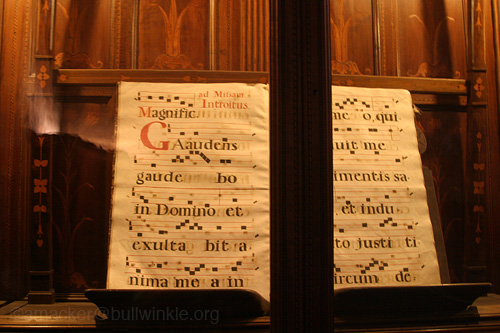 ad Missa
Introitus
Magnific.
GAudens
gaude bo
in Domino et
exulta bit a
nima me a in
me o, qui
uit me
imentis sa
, et indu
to justi ti
ircum de
macker@bullwinkle.org